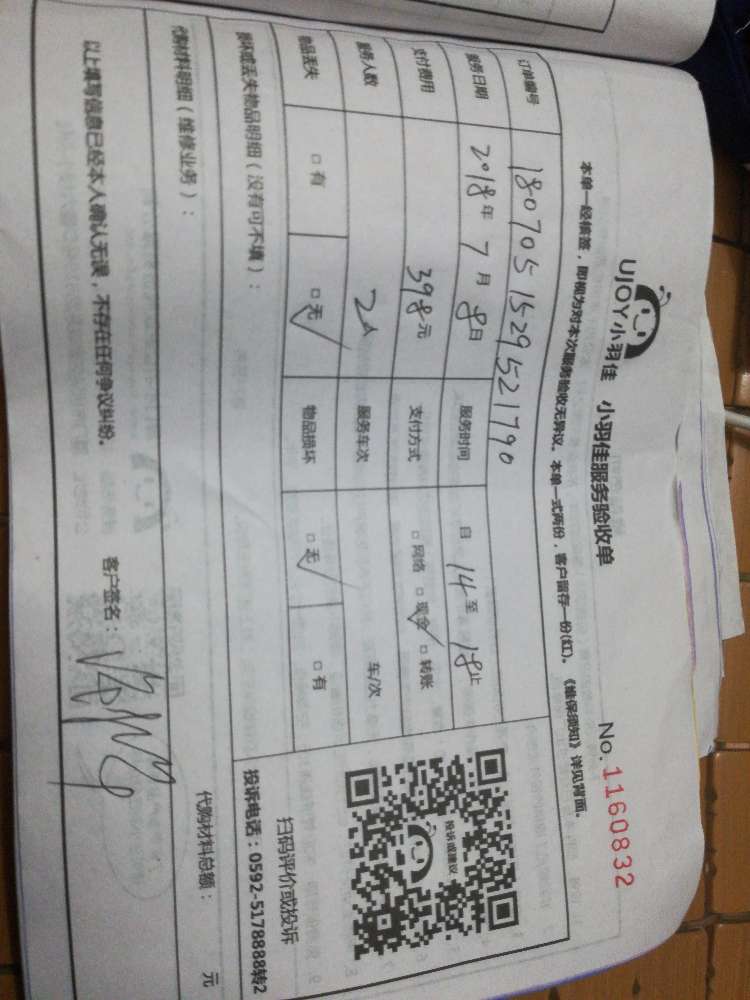 UJOY小羽佳 小羽佳服务验收单
No. 1160832
本单一经核签，即视为对本次服务验收无异议。本单一式两份，客户留存一份(红)。《维保须知》详见背面。
订单编号 1807051529521790
服务日期 2018年7月8日 服务时间 自14至18止
支付费用 398元 支付方式 □网络 □现金 ✓ □转账
服务人数 2人 服务车次 车/次
物品丢失 □有 □无 ✓ 物品损坏 □无 ✓ □有
投诉或建议
扫码评价或投诉
投诉电话：0592-5178888转2
损坏或丢失物品明细（没有可不填）：
代购材料明细（维修业务）： 代购材料总额： 元
以上填写信息已经本人确认无误，不存在任何争议纠纷。 客户签名：